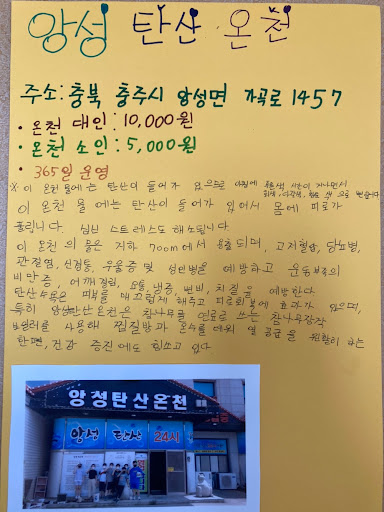 앙성 탄산 온천
주소: 충북 충주시 앙성면 가곡로 1457
• 온천 대인 : 10,000원
• 온천 소인 : 5,000원
• 365일 운영
※ 이 온천 물에는 탄산이 들어가 있으므로
이 온천 물 에는 탄산이 들어가 있어서 몸에 피로가
풀립니다. 심신 스트레스도 해소됩니다
이 온천 의 물은 지하 700m에서 용출되며, 고지혈압, 당뇨병,
관절염, 신경통, 우울증 및 성인병을 예방하고 운동부족의
비만증, 어깨결림, 요통, 냉증, 변비, 치질을 예방한다.
탄산수욕은 피부를 매끄럽게 해주고 피로회복에 효과가 있으며,
특히 앙성탄산온천은 참나무를 연료로 쓰는 참나무장작
보일러를 사용해 찜질방과 온수를 데워 열 공급을 원활히 하는
한편, 건강 증진에도 힘쓰고 있다
앙성탄산온천
앙성 탄산 24시